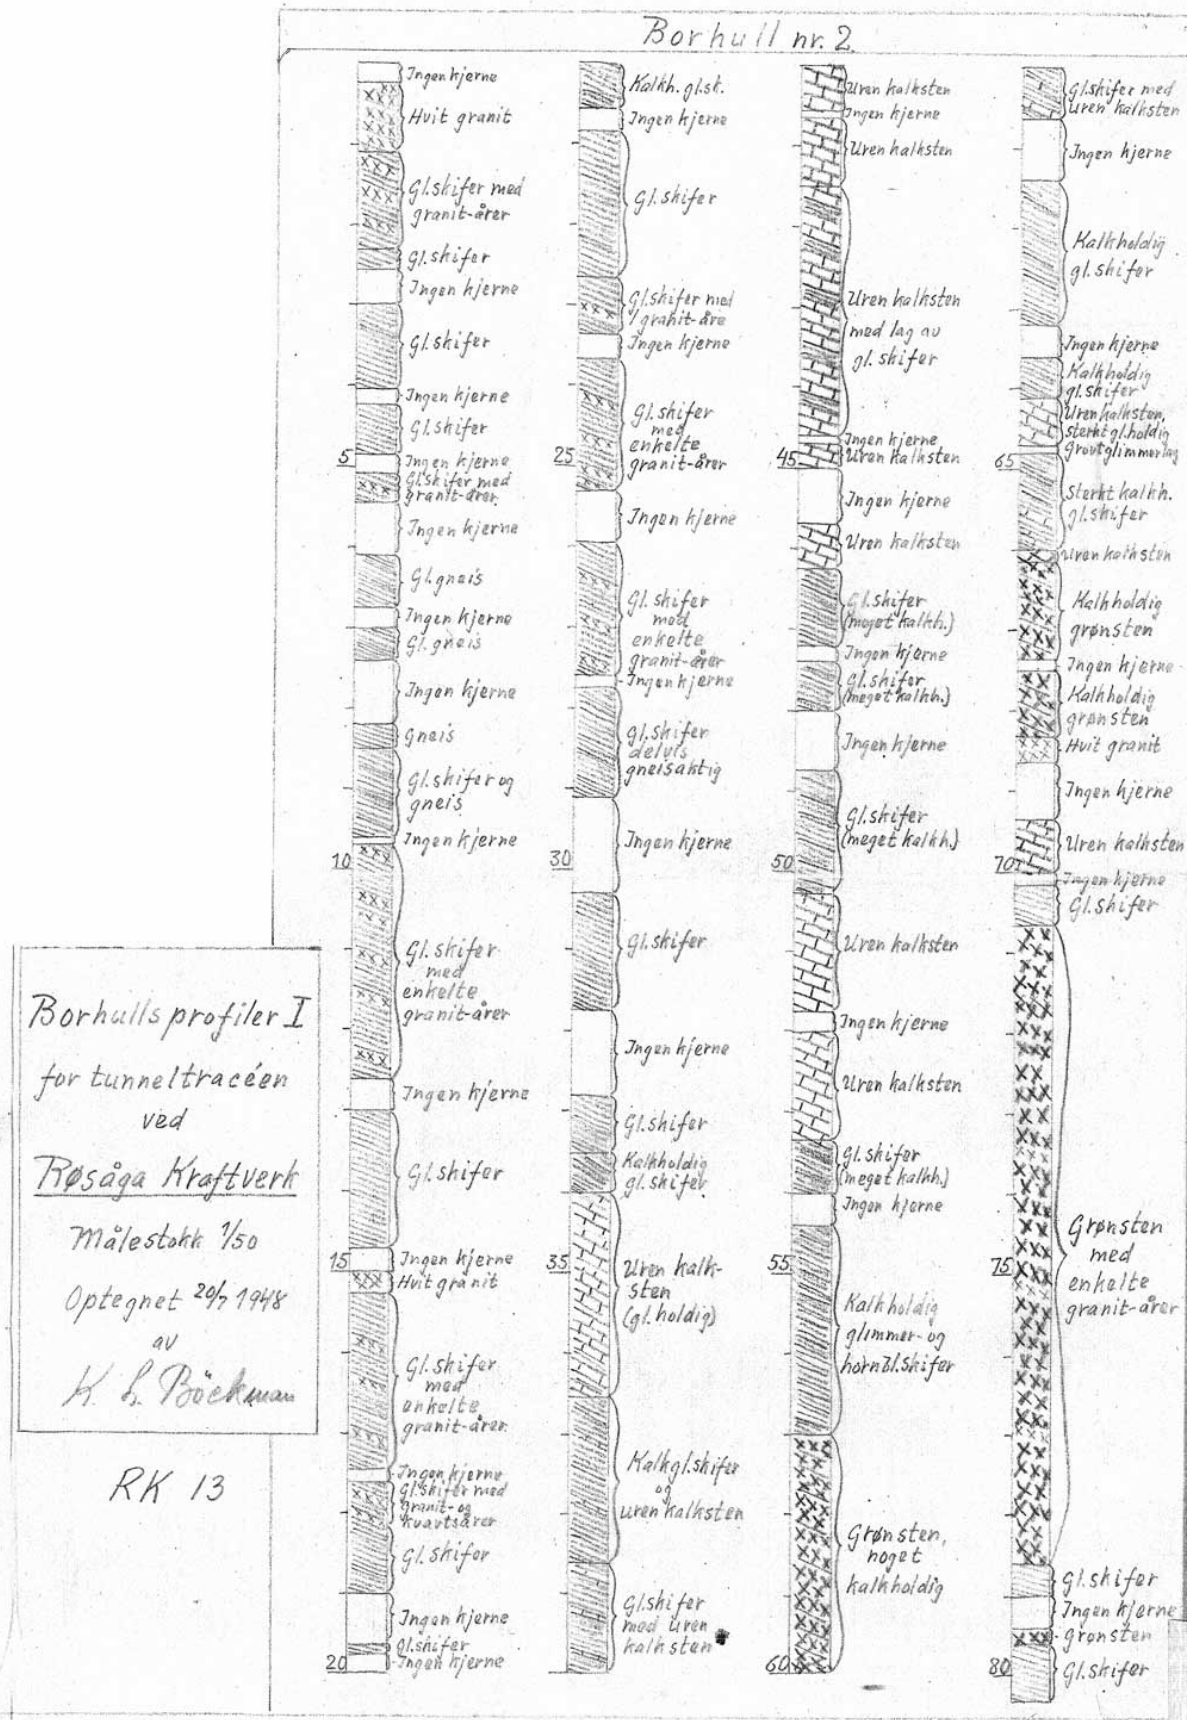 Borhull nr. 2.
Ingen kjerne
Hvit granit
Gl.skifer med
granit-årer
Gl.skifer
Ingen kjerne
Gl.skifer
Ingen kjerne
Gl.skifer
5
Ingen kjerne
Gl.skifer med
granit-årer
Ingen kjerne
Gl.gneis
Ingen kjerne
Gl.gneis
Ingen kjerne
Gneis
Gl.skifer og
gneis
Ingen kjerne
10
Gl.skifer
med
enkelte
granit-årer
Ingen kjerne
Gl.skifer
15
Ingen kjerne
Hvit granit
Gl.skifer
med
enkelte
granit-årer
Ingen kjerne
Gl.skifer med
granit-og
kvartsårer
Gl.skifer
Ingen kjerne
gl.skifer
20
Ingen kjerne
Kalkh. gl.sk.
Ingen kjerne
Gl.skifer
Gl.skifer med
1 granit-åre
Ingen kjerne
Gl.skifer
med
enkelte
25
granit-årer
Ingen kjerne
Gl.skifer
med
enkelte
granit-årer
Ingen kjerne
gl.skifer
delvis
gneisaktig
Ingen kjerne
30
Gl.skifer
Ingen kjerne
Gl.skifer
Kalkholdig
gl.skifer
35
Uren kalk-
sten
(gl.holdig)
Kalkgl.skifer
og
uren kalksten
Gl.skifer
med uren
kalksten
Uren kalksten
Ingen kjerne
Uren kalksten
Uren kalksten
med lag av
gl.skifer
Ingen kjerne
45
Uren kalksten
Ingen kjerne
Uren kalksten
Gl.skifer
(meget kalkh.)
Ingen kjerne
Gl.skifer
(meget kalkh.)
Ingen kjerne
Gl.skifer
(meget kalkh.)
50
Uren kalksten
Ingen kjerne
Uren kalksten
Gl.skifer
(meget kalkh.)
Ingen kjerne
55
Kalkholdig
glimmer-og
hornbl.skifer
Grønsten,
noget
kalkholdig
60
Gl.skifer med
uren kalksten
Ingen kjerne
Kalkholdig
gl.skifer
Ingen kjerne
Kalkholdig
gl.skifer
Uren kalksten,
sterkt gl.holdig
Grovt glimmerlag
65
Sterkt kalkh.
gl.skifer
Uren kalksten
Kalkholdig
grønsten
Ingen kjerne
Kalkholdig
grønsten
Hvit granit
Ingen kjerne
Uren kalksten
70
Ingen kjerne
Gl.skifer
Grønsten
med
75
enkelte
granit-årer
Gl.skifer
Ingen kjerne
grønsten
80
Gl.skifer
Borhullsprofiler I
for tunneltracéen
ved
Røsåga Kraftverk
Målestokk 1/50
Optegnet 20/7 1948
av
K. L. Böckman
RK 13